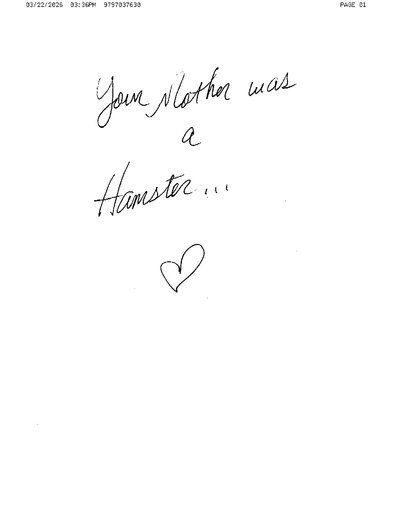 03/22/2026 03:36PM 9797037630 PAGE 01
Your Mother was
a
Hamster...